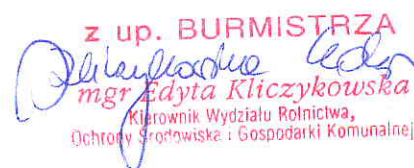 z up. BURMISTRZA
mgr Edyta Kliczykowska
Kierownik Wydziału Rolnictwa,
Ochrony Środowiska i Gospodarki Komunalnej